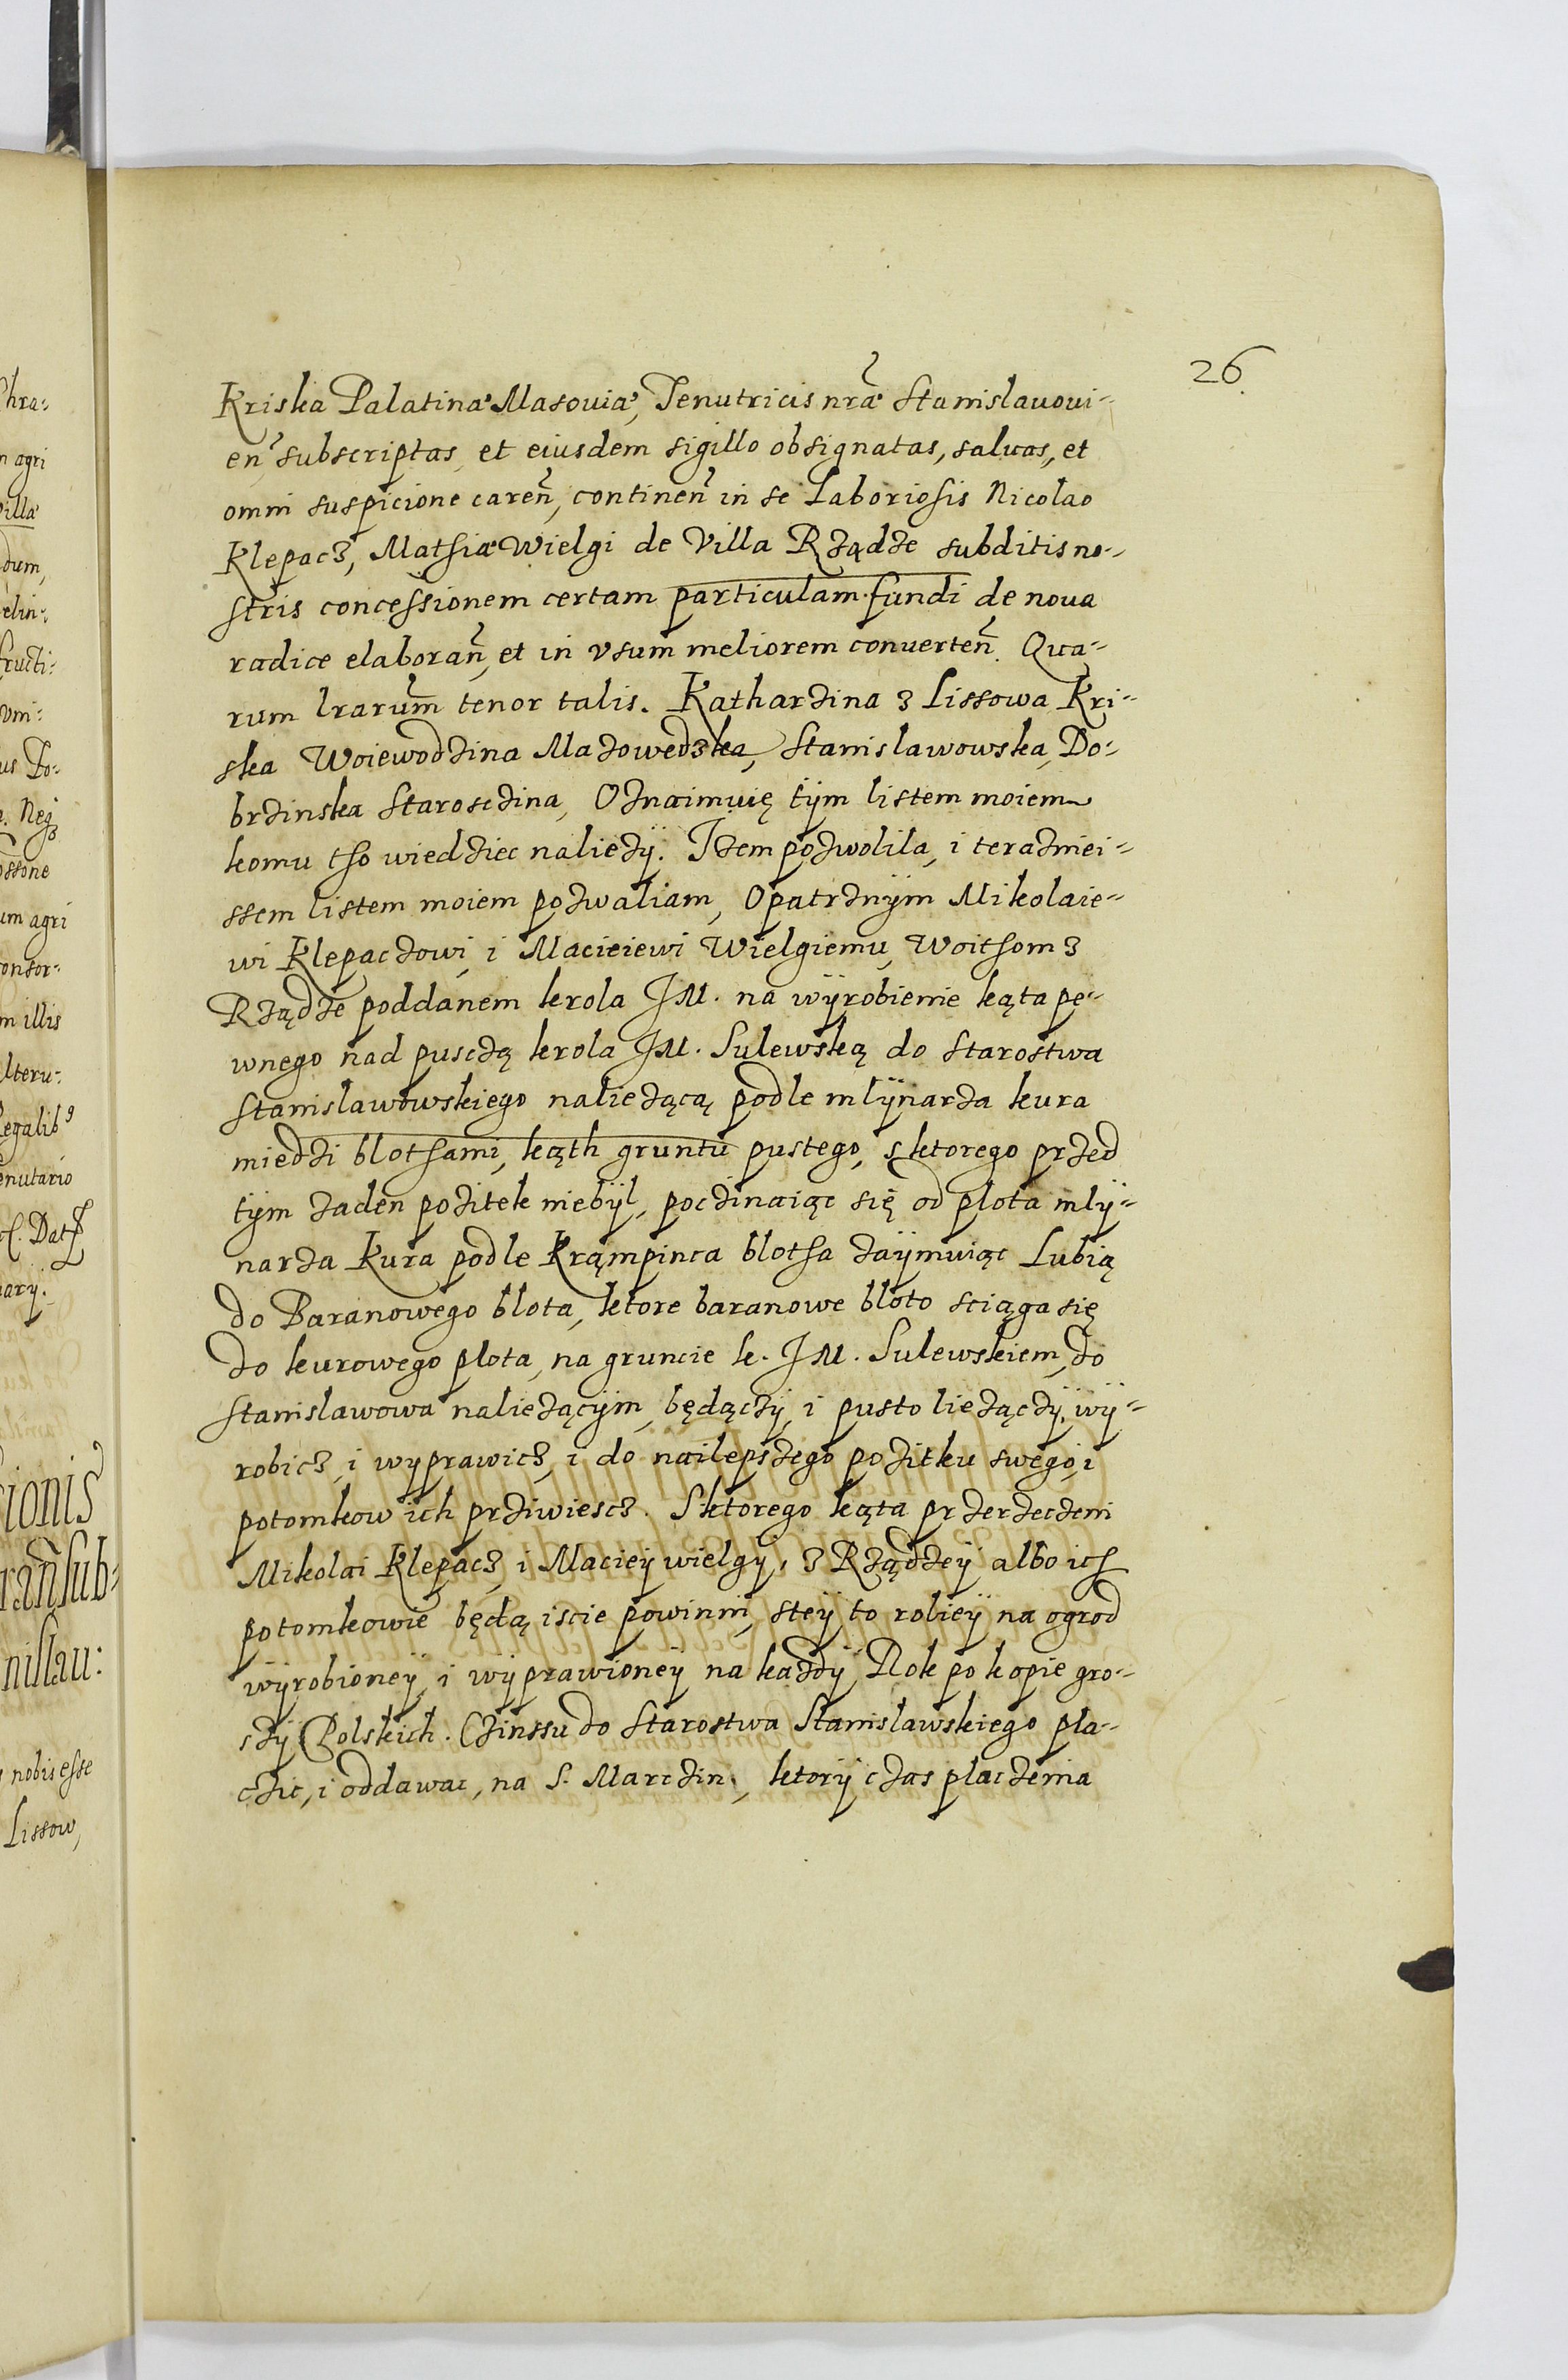 26
Kriska Palatinæ Masouiæ, Tenutricis nr̃æ Stanislauoui-
eñ subscriptas et eiusdem sigillo obsignatas, saluas, et
omni suspicione careñ, contineñ in se Laboriosis Nicolao
Klepacz, Mathiæ Wielgi de Villa Rządze subditis no-
stris concessionem certam particulam fundi de noua
radice elaborañ, et in vsum meliorem conuerteñ. Qua-
rum lr̃arum tenor talis. Katharzina z Lissowa Kri-
ska Woiewodzina Mazowedzka, Stanislawowska, Do-
brzinska Starosczina, Oznaimuię tÿm listem moiem
komu tho wiedziec nalieżÿ. Jżem pozwolila, i teraznei-
ssem listem moiem pozwaliam, Opatrznÿm Mikolaie-
wi Klepaczowi, i Macieiewi Wielgiemu, Woithom z
Rządze poddanem krola JM. na wÿrobienie kąta pe-
wnego nad pusczą krola JM. Sulewską do Starostwa
Stanislawowskiego należącą podle mlÿnarza kura
miedzi blothami, kąth gruntu pustego, s ktorego przed
tÿm zaden pozitek niebÿl, poczinaiąc się od plota mlÿ-
narza Kura podle Krąmpinca blotha zaÿmuiąc Lubią
do Baranowego blota, ktore baranowe bloto sciąga się
do kurowego plota, na gruncie k. JM. Sulewskiem, do
Stanislawowa należącÿm, będączÿ, i pusto liezączÿ, wÿ-
robicz, i wyprawicz, i do nailepszego pozitku swego, i
potomkow ich prziwiescz. S ktorego kąta przerzeczeni
Mikolai Klepacz, i Macieÿ wielgÿ, z Rządzeÿ albo ich
potomkowie będą iscie powinni, steÿ to rolieÿ na ogrod
wÿrobioneÿ, i wÿprawioneÿ na kazdÿ Rok po kopie gro-
szÿ Polskich. Czinssu do Starostwa Stanislawskiego pla-
czic, i oddawac, na S. Marczin, ktorÿ czas placzenia